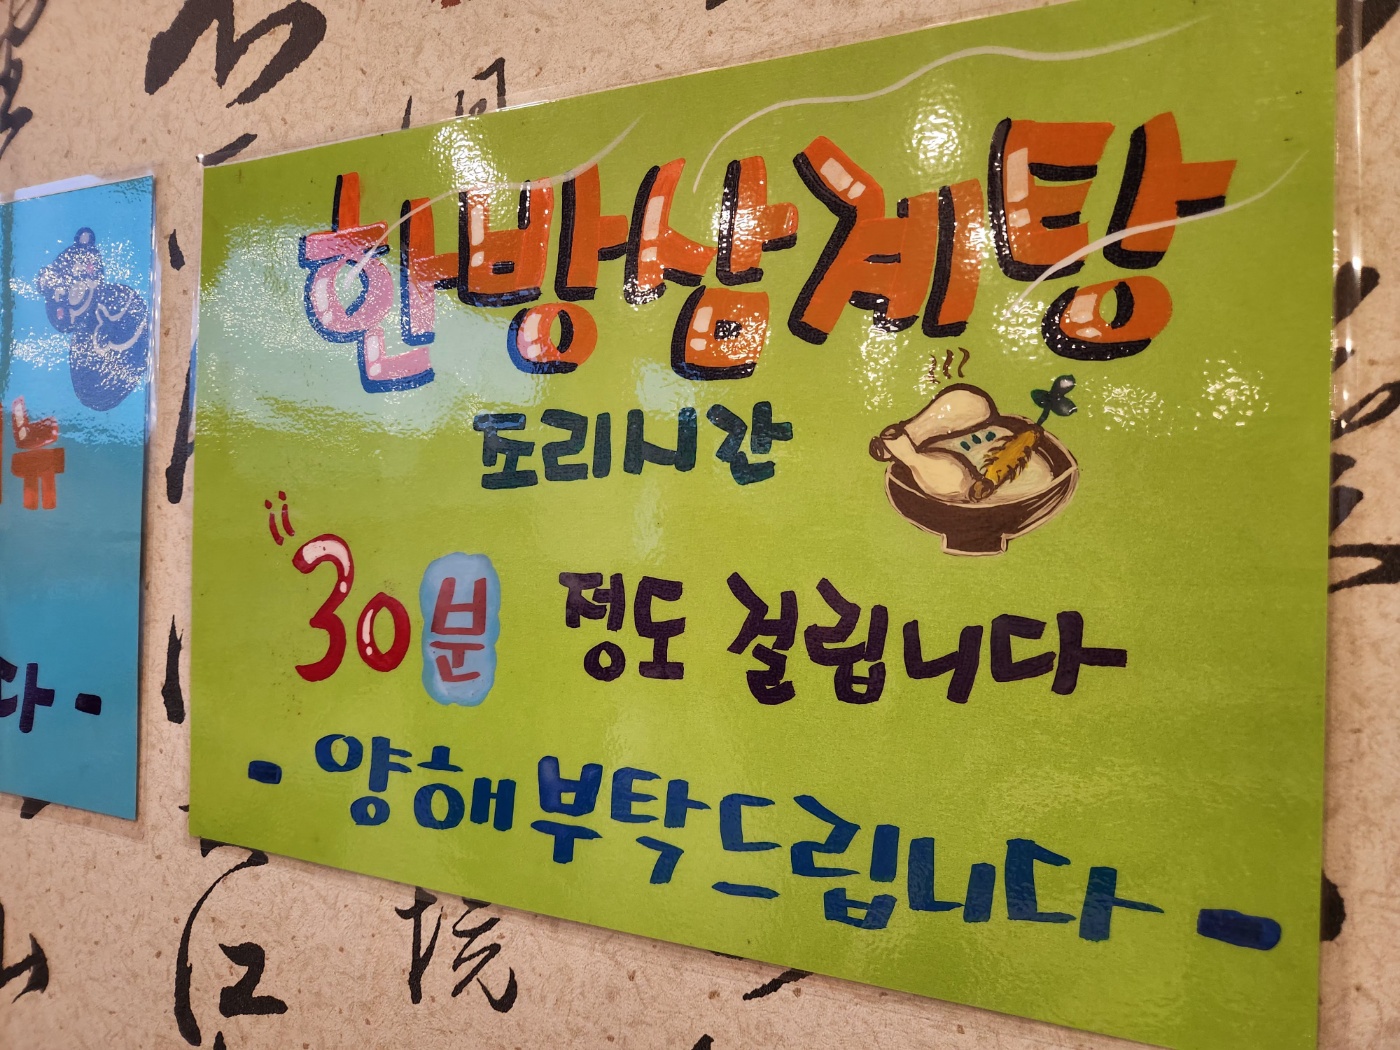 한방삼계탕
조리시간
30분 정도 걸립니다
- 양해부탁드립니다 -
뉴
다 -